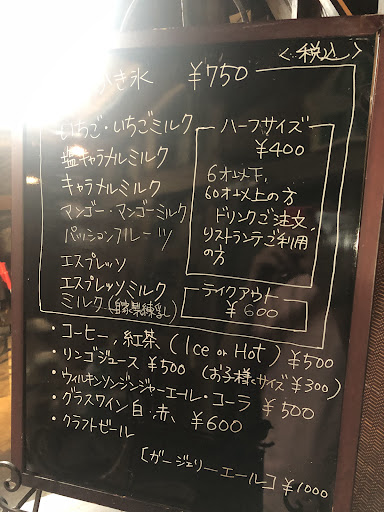 <税込>
き氷 ¥750
いちご・いちごミルク
塩キャラメルミルク
キャラメルミルク
マンゴー・マンゴーミルク
パッションフルーツ
エスプレッソ
エスプレッソミルク
ミルク(自家製練乳)
ハーフサイズ
¥400
6才以下,
60才以上の方
ドリンクご注文,
リストランテご利用
の方
テイクアウト
¥600
・コーヒー,紅茶(Ice or Hot) ¥500
・リンゴジュース ¥500 (お子様サイズ ¥300)
・ウィルキンソンジンジャーエール・コーラ ¥500
・グラスワイン 白・赤, ¥600
・クラフトビール
[ガージェリーエール] ¥1000